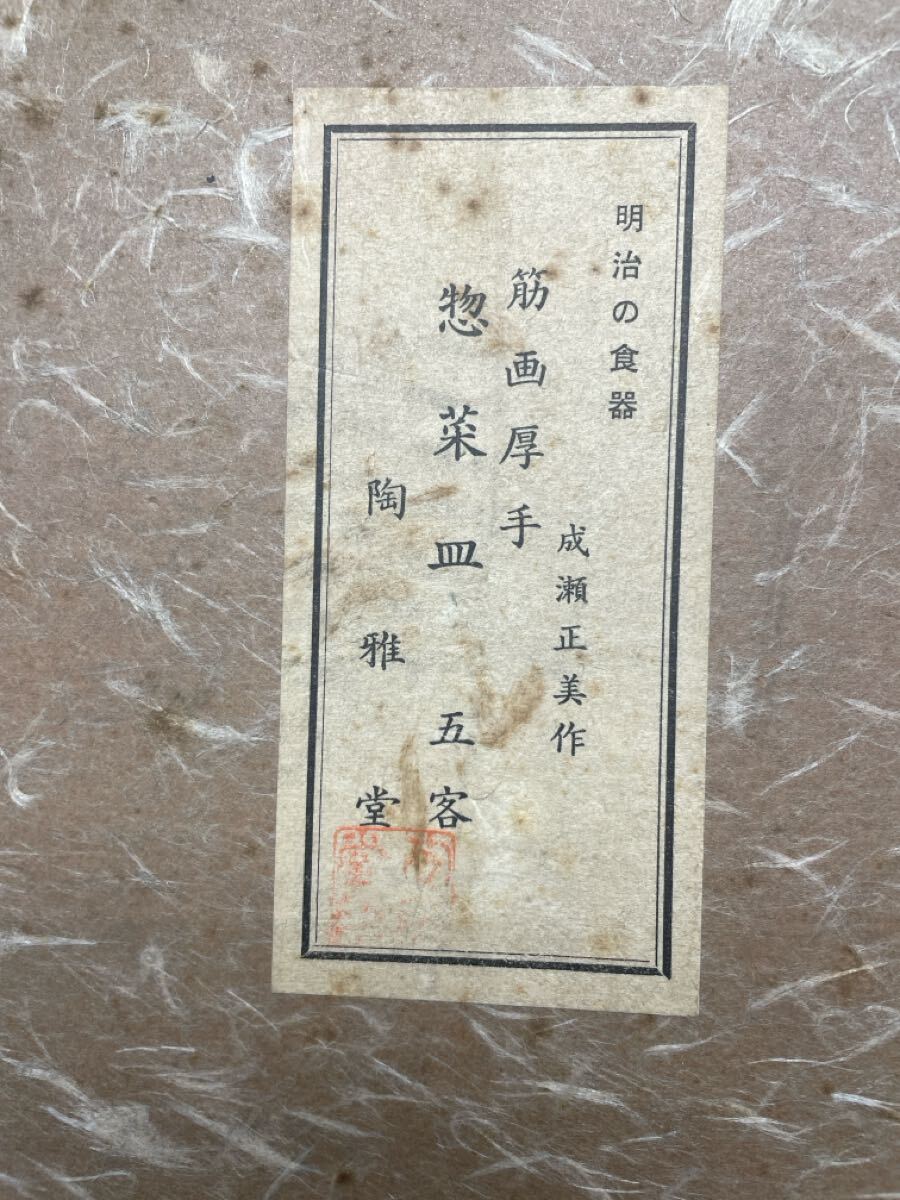 明治の食器
成瀬正美作
筋画厚手
惣菜皿 五客
陶雅堂